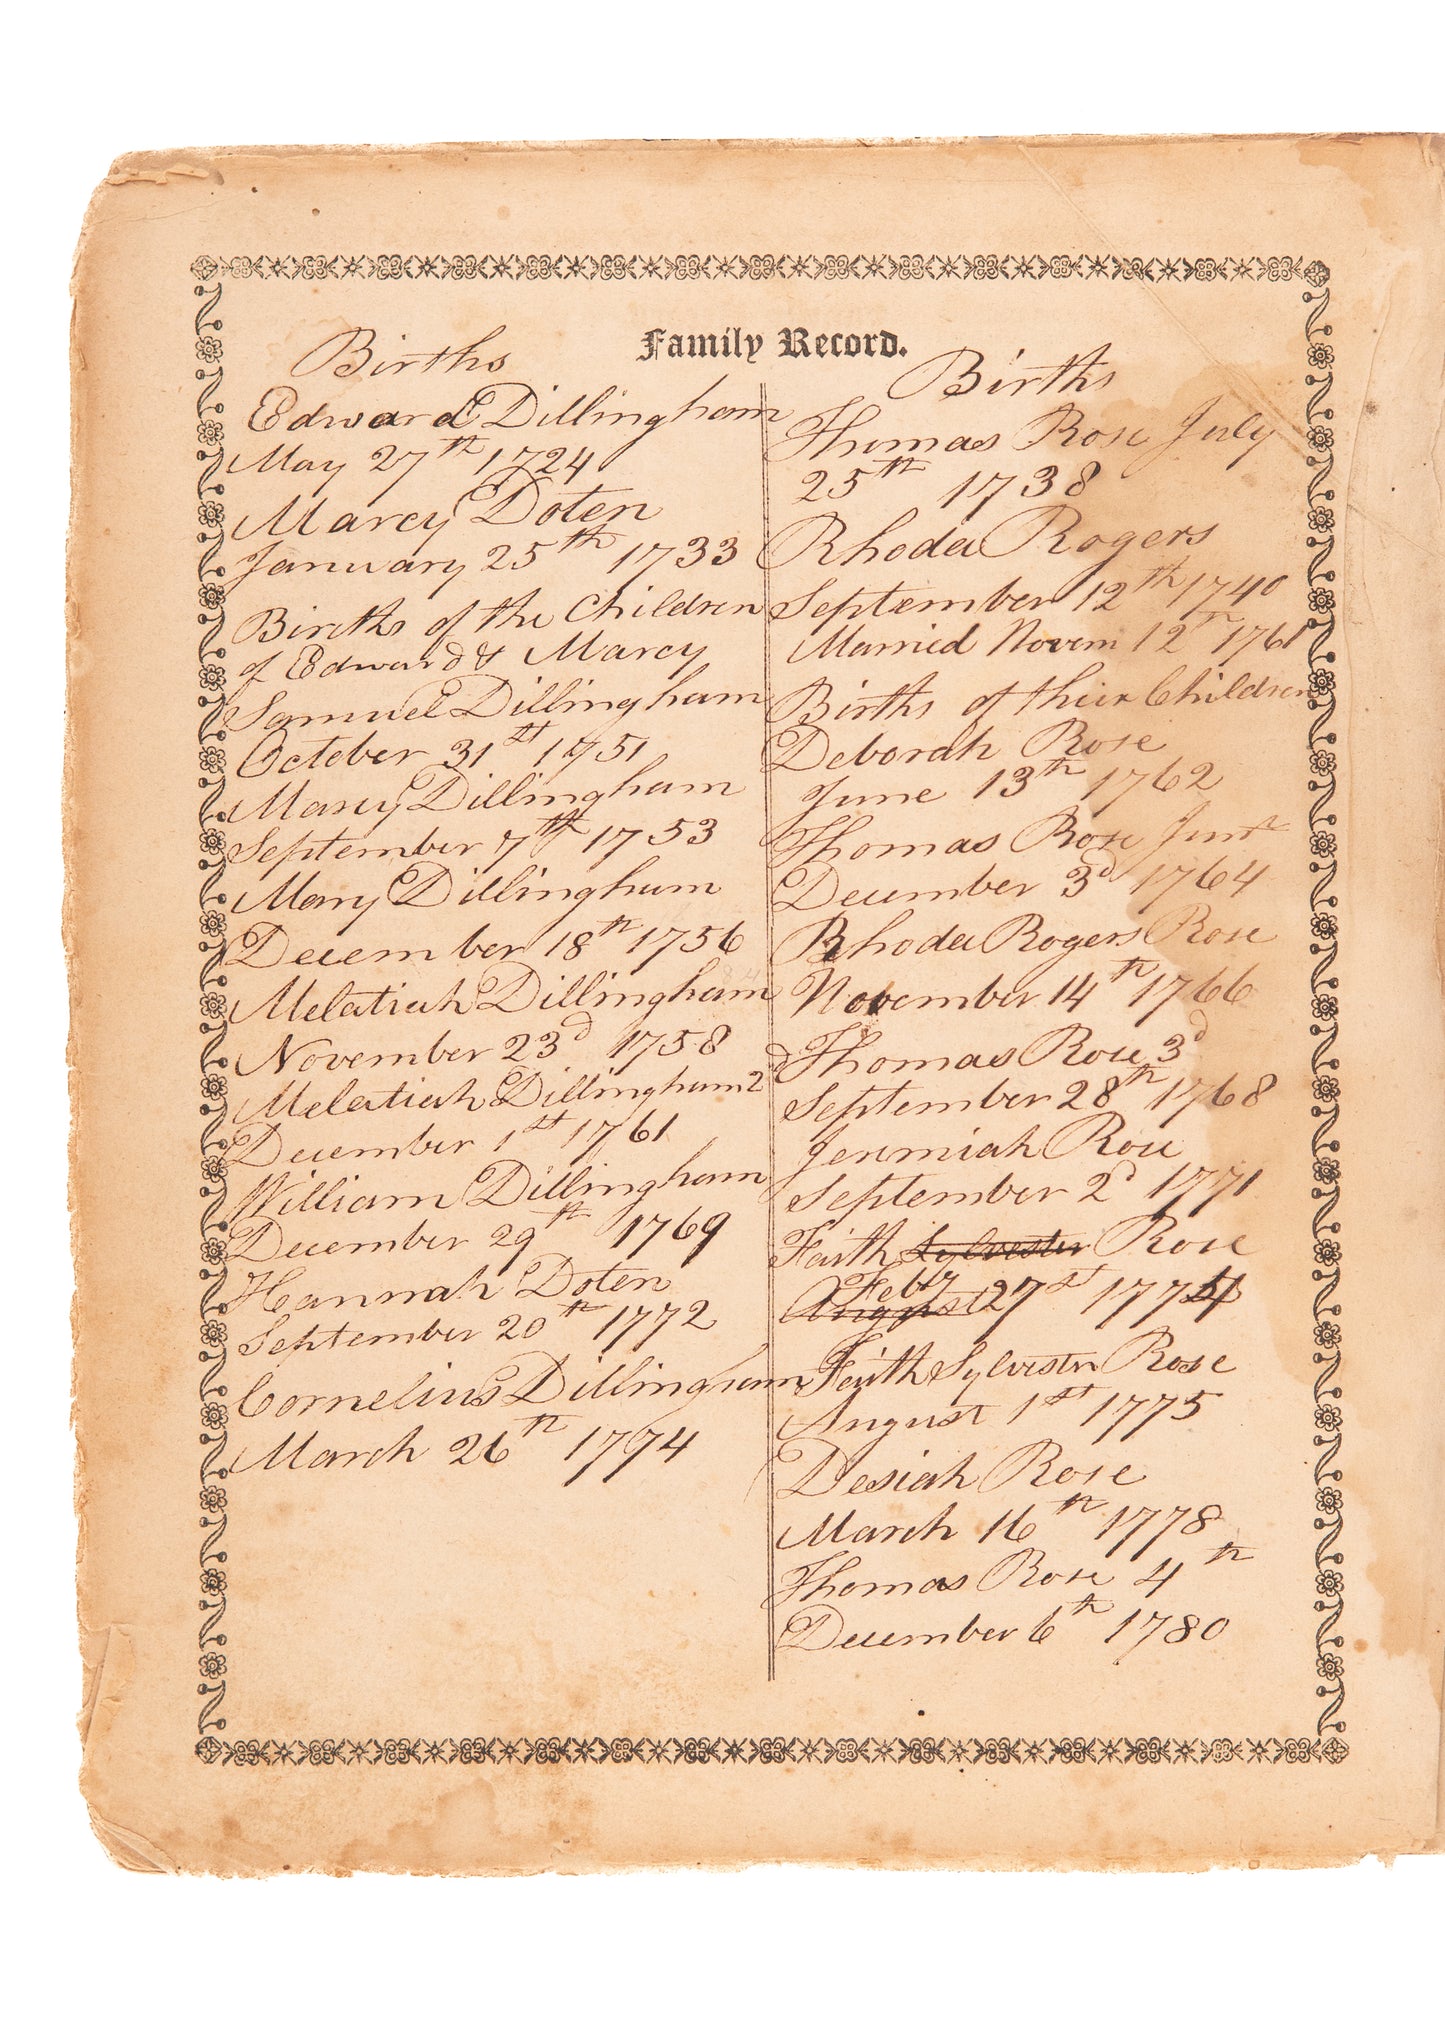 Family Record.
Births
Edward Dillingham
May 27th 1724
Marcy Doten
January 25th 1733
Births of the Children
of Edward & Marcy
Samuel Dillingham
October 31st 1751
Marcy Dillingham
September 7th 1753
Mary Dillingham
December 18th 1756
Melatiah Dillingham
November 23d 1758
Melatiah Dillingham 2d
December 1st 1761
William Dillingham
December 29th 1769
Hannah Doten
September 20th 1772
Cornelius Dillingham
March 26th 1794
Births
Thomas Rose July
25th 1738
Rhoda Rogers
September 12th 1740
Married Novem 12th 1761
Births of their Children
Deborah Rose
June 13th 1762
Thomas Rose Junr
December 3d 1764
Rhoda Rogers Rose
November 14th 1766
Thomas Rose 3d
September 28th 1768
Jeremiah Rose
September 2d 1771
Faith Sylvester Rose
Feby
August 27st 1774
Faith Sylvester Rose
August 1st 1775
Desiah Rose
March 16th 1778
Thomas Rose 4th
December 6th 1780